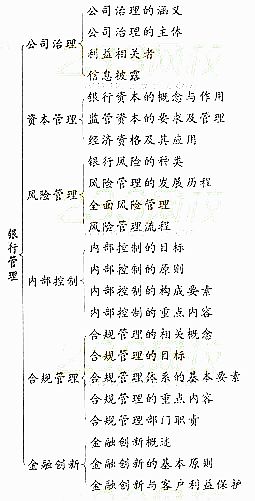 银行管理
公司治理
公司治理的涵义
公司治理的主体
利益相关者
信息披露
资本管理
银行资本的概念与作用
监管资本的要求及管理
经济资格及其应用
风险管理
银行风险的种类
风险管理的发展历程
全面风险管理
风险管理流程
内部控制
内部控制的目标
内部控制的原则
内部控制的构成要素
内部控制的重点内容
合规管理
合规管理的相关概念
合规管理的目标
合规管理体系的基本要素
合规管理的重点内容
合规管理部门职责
金融创新
金融创新概述
金融创新的基本原则
金融创新与客户利益保护